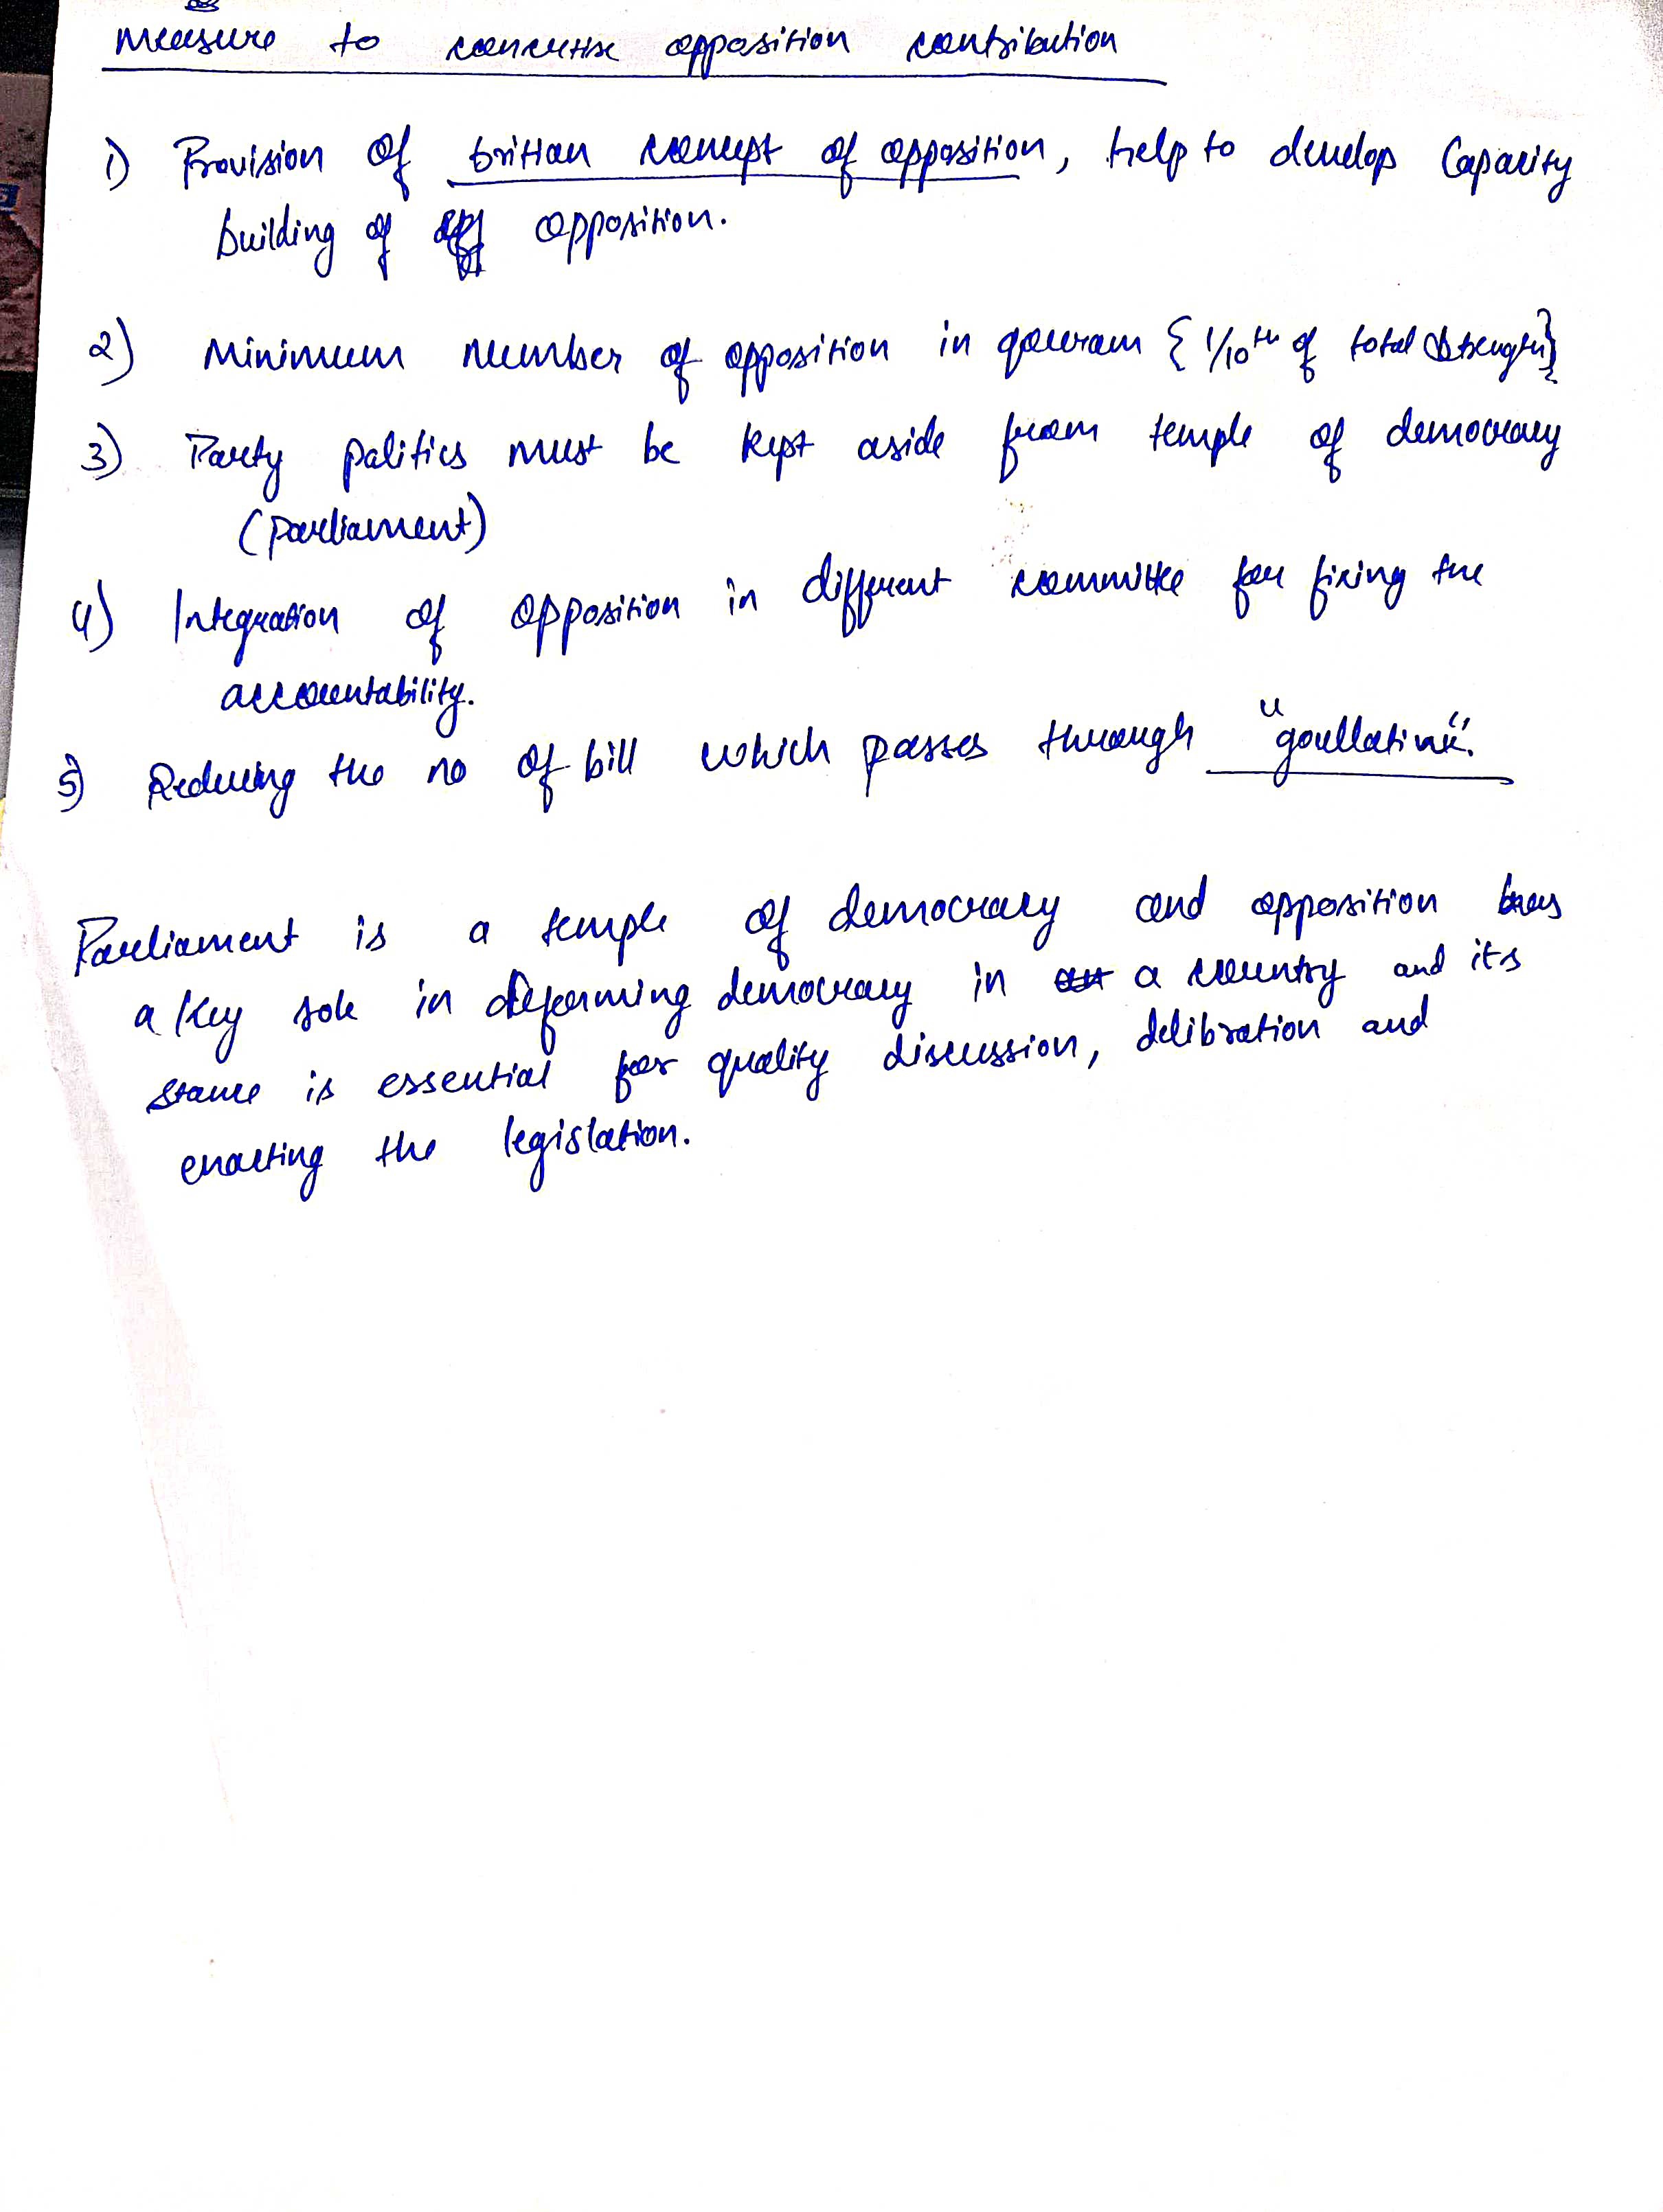 measure to concretise opposition contribution
1) Provision of brittan concept of opposition, help to develop Capacity
building of opposition.
2) Minimum number of opposition in qouram { 1/10th of total strength}
3) Party politics must be kept aside from temple of democracy
(parliament)
4) Integration of opposition in different committe for fixing the
accountability.
5) Reducing the no of bill which passes through "goullatine".
Parliament is a temple of democracy and opposition has
a key role in deforming democracy in a country and its
stance is essential for quality discussion, delibration and
enacting the legislation.